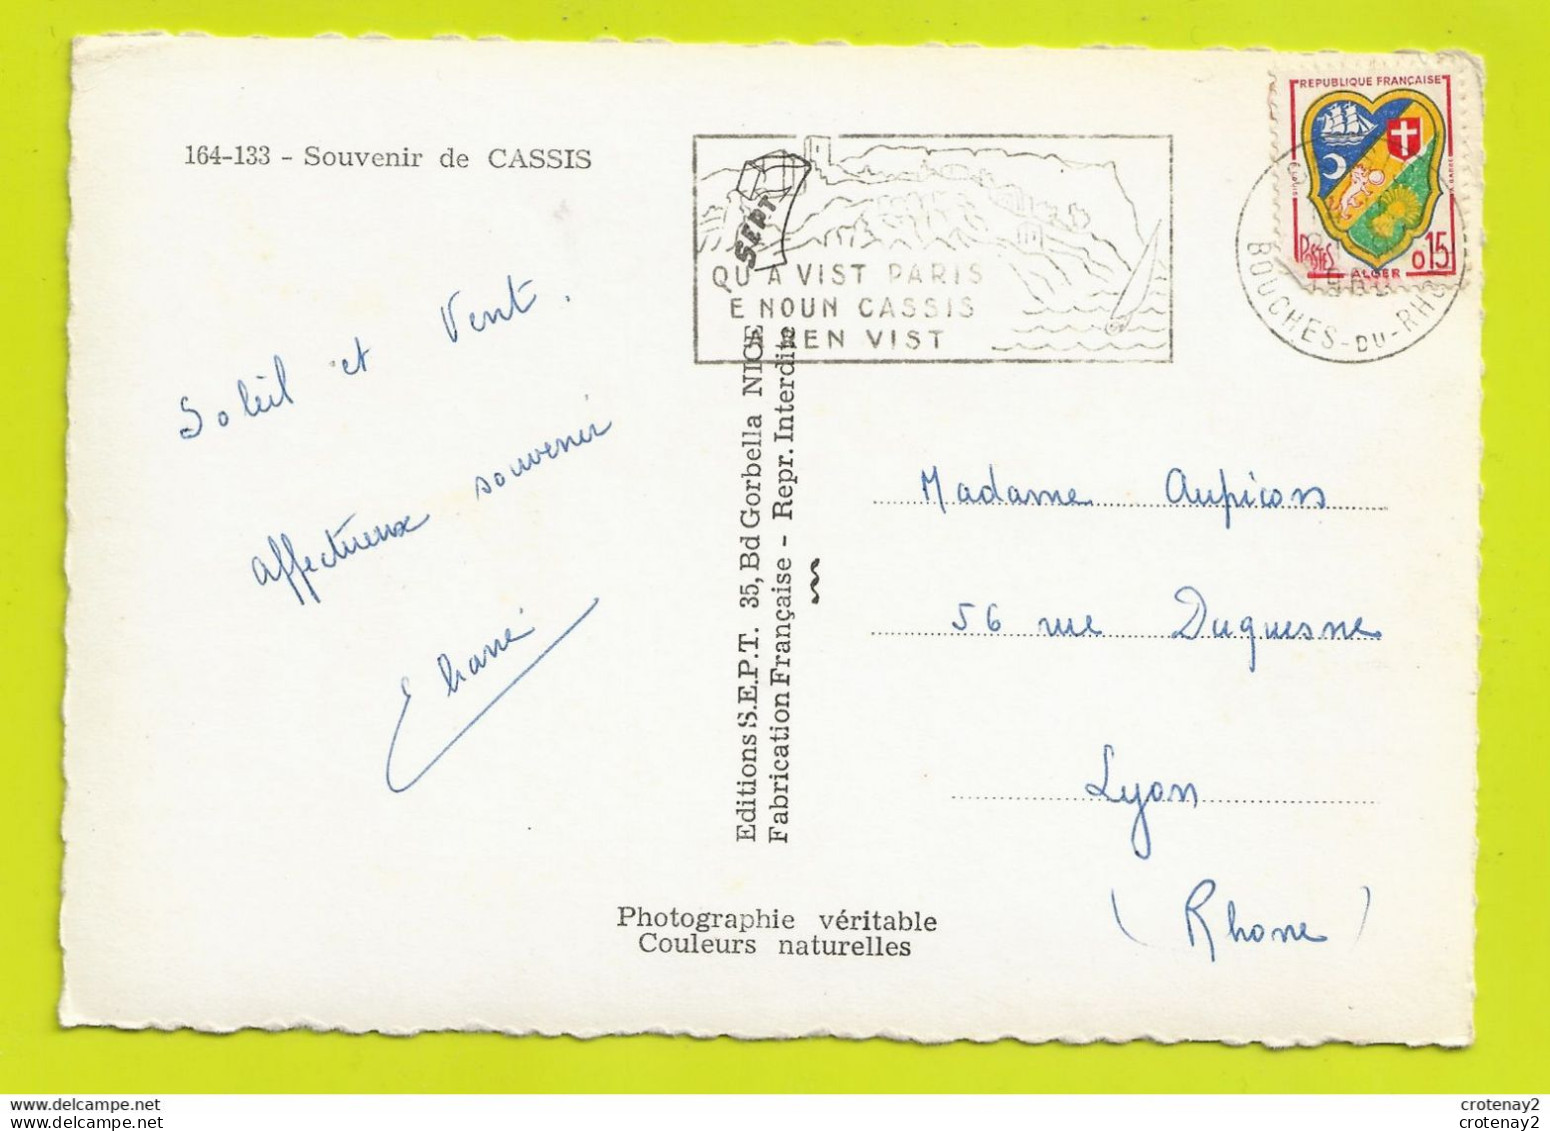 164-133 - Souvenir de CASSIS
Soleil et Vent.
affectueux souvenir
SEPT
QU A VIST PARIS
E NOUN CASSIS
A REN VIST
REPUBLIQUE FRANÇAISE
POSTES
ALGER
0,15
BOUCHES-DU-RHONE
Editions S.E.P.T. 35, Bd Gorbella NICE
Fabrication Française - Repr. Interdite
Madame Aupicon
56 rue Duquesne
Lyon
(Rhone)
Photographie véritable
Couleurs naturelles
delcampe.net
crotenay2
delcampe.net
crotenay2